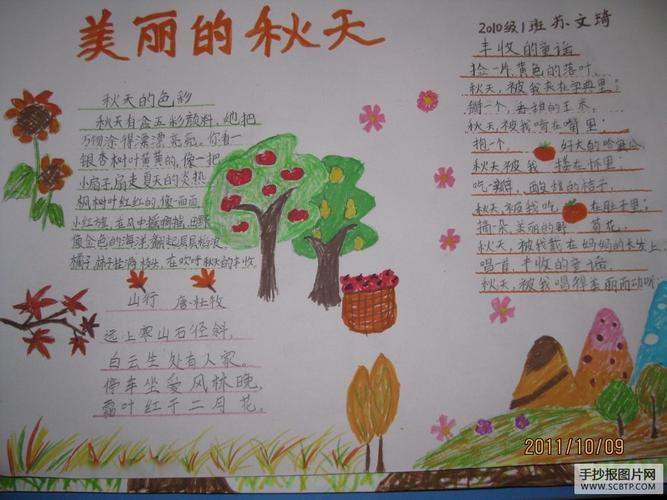 美丽的秋天
2010级1班 苏文琦
秋天的色彩
秋天有盒五彩颜料,她把
万物涂得漂漂亮亮。你看—
银杏树叶黄黄的,像一把
小扇子扇走夏天的炎热
枫树叶红红的,像一面面
小红旗,在风中摇啊摇,田野
像金色的海洋,翻起层层稻浪
橘子 柿子挂满枝头,在欢呼秋天的丰收。
山行 唐·杜牧
远上寒山石径斜,
白云生处有人家。
停车坐爱风林晚,
霜叶红于二月花。
丰收的童谣
捡一片,黄色的落叶,
秋天,被我夹在字典里;
掰一个,香甜的玉米,
秋天,被我啃在嘴里;
抱一个, 好大的哈密瓜
秋天,被我 搂在怀里;
吃一瓣, 酸甜的桔子,
秋天,被我吃 在肚子里;
摘一朵,美丽的野 菊花,
秋天,被我戴在妈妈的长发上,
唱一首,丰收的童谣,
秋天,被我唱得美丽而动听
2011/10/09
手抄报图片网
WWW.SCBTP.COM